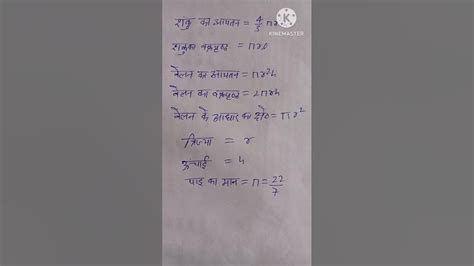 शंकु का आयतन = 4/3 πr
शंकु का वक्रपृष्ठ = πrl
बेलन का आयतन = πr²h
बेलन का वक्रपृष्ठ = 2πrh
बेलन के आधार का क्षे० = πr²
त्रिज्या = r
ऊंचाई = h
पाई का मान = π = 22/7
KINEMASTER